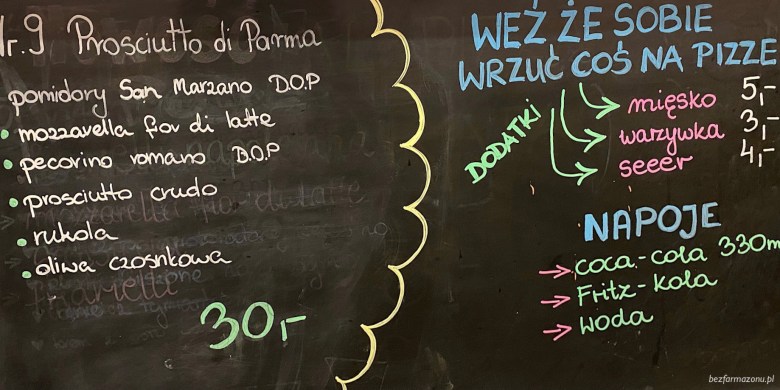 Nr.9 Prosciutto di Parma
pomidory San Marzano D.O.P
mozzarella fior di latte
pecorino romano D.O.P
prosciutto crudo
rukola
oliwa czosnkowa
30,-
WEŹ ŻE SOBIE
WRZUĆ COŚ NA PIZZE
DODATKI
mięsko 5,-
warzywka 3,-
seeer 4,-
NAPOJE
coca-cola 330m
Fritz-kola
woda
bezfarmazonu.pl